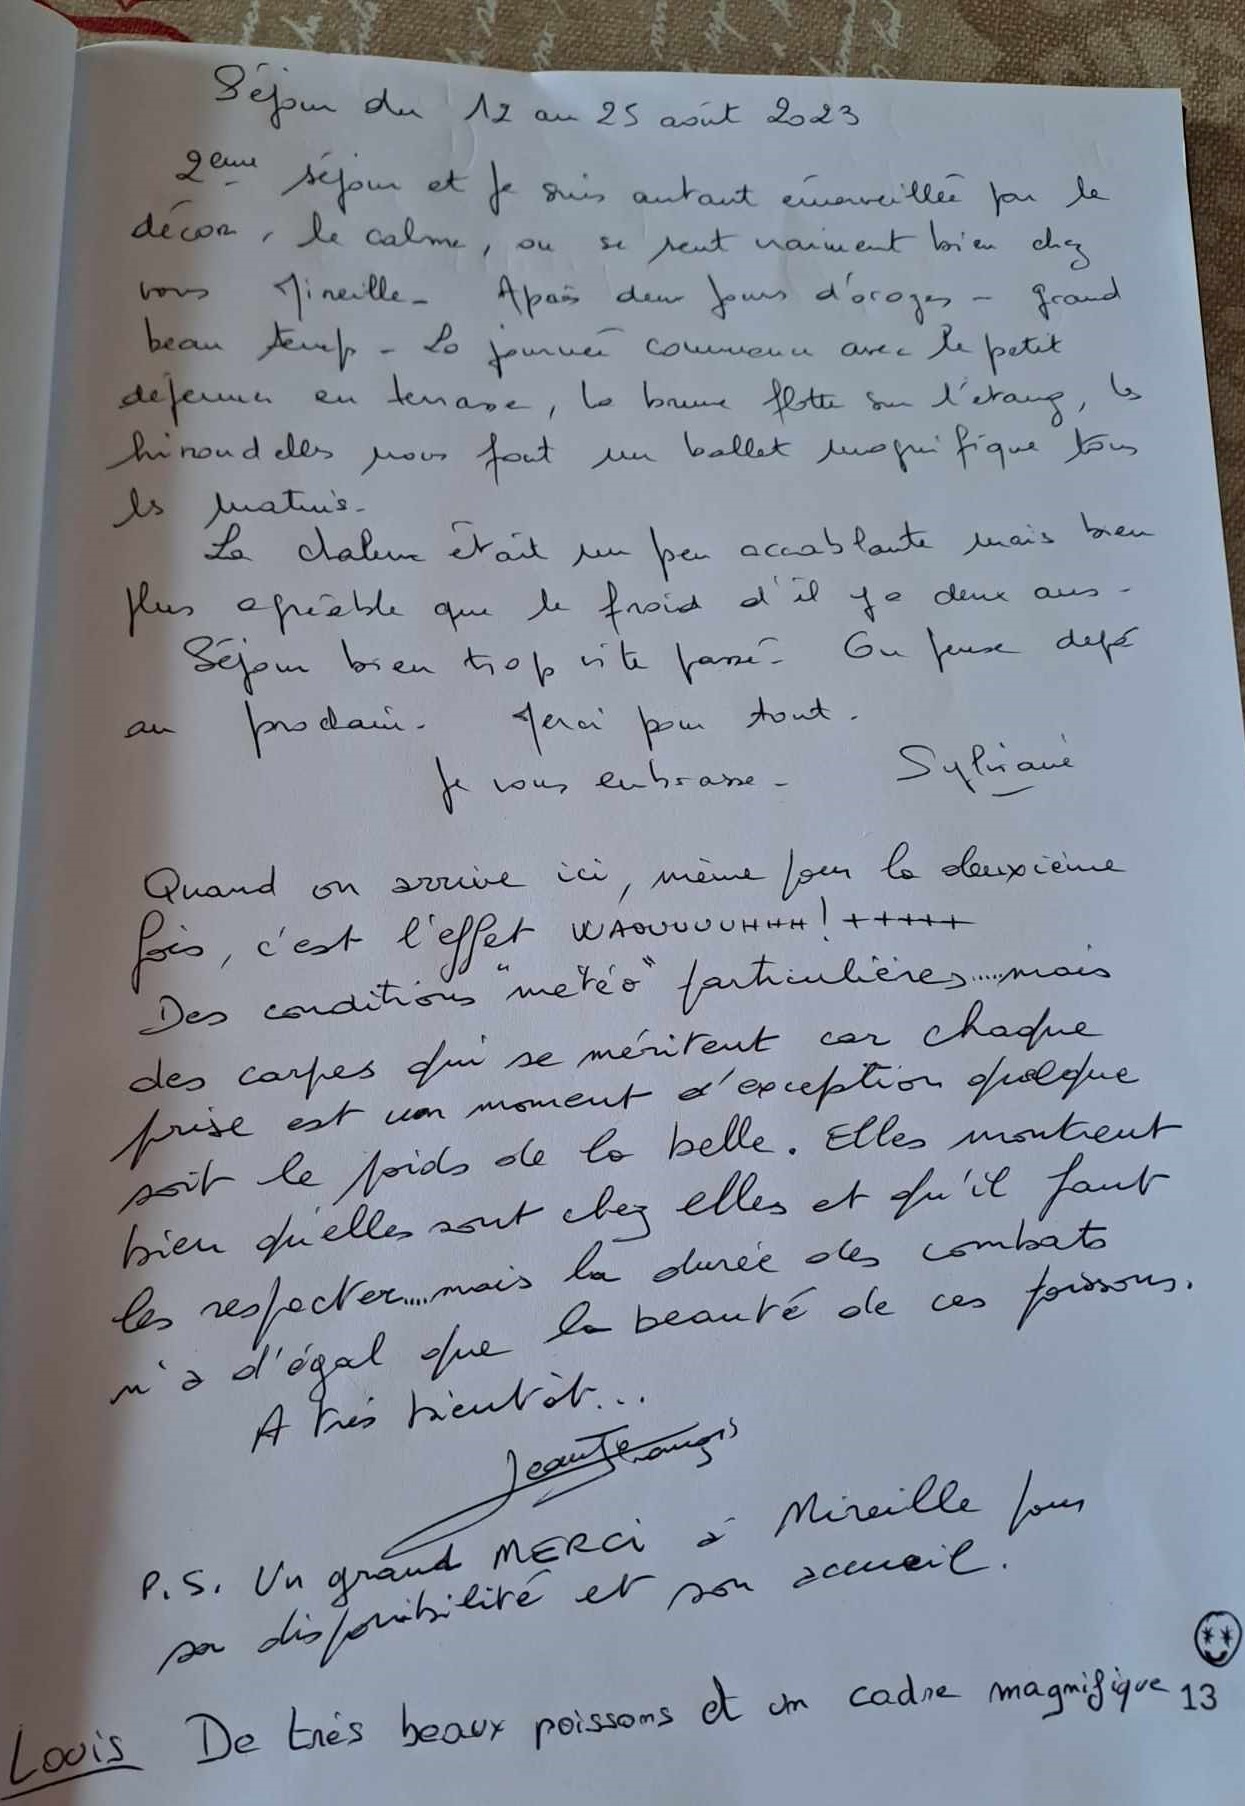 Séjour du 12 au 25 août 2023
2ème séjour et je suis autant émerveillée par le
décor, le calme, on se sent vraiment bien chez
vous Mireille - Après deux jours d'orages - grand
beau temps - La journée commence avec le petit
déjeuner en terrasse, la brume flotte sur l'étang, les
hirondelles nous font un ballet magnifique tous
les matins.
La chaleur était un peu accablante mais bien
plus agréable que le froid d'il y a deux ans -
Séjour bien trop vite passé - On pense déjà
au prochain - Merci pour tout.
Je vous embrasse - Sylviane
Quand on arrive ici, même pour la deuxième
fois, c'est l'effet WAOUUUUHHH! +++++
Des conditions "météo" particulières.....mais
des carpes qui se méritent car chaque
prise est un moment d'exception quelque
soit le poids de la belle. Elles montrent
bien qu'elles sont chez elles et qu'il faut
les respecter....mais la durée des combats
n'a d'égal que la beauté de ces poissons.
A très bientôt...
Jean François
P.S. Un grand MERCi à Mireille pour
sa disponibilité et son accueil.
Louis De très beaux poissons et un cadre magnifique 13